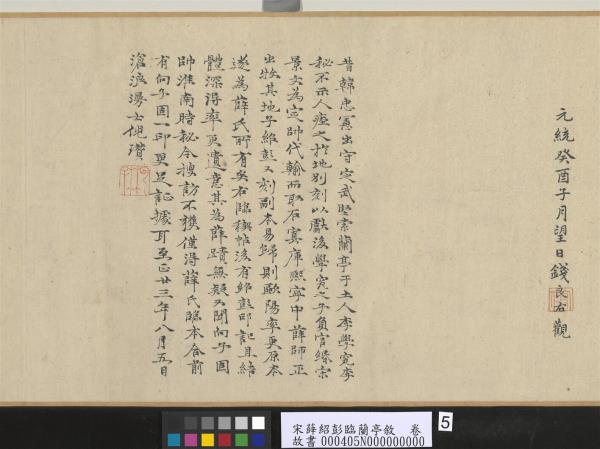 元統癸酉子月望日錢良右觀
昔韓忠憲出守定武堅索蘭亭于土人李學究李
秘不示人瘞之於地別刻以獻後學究之子負官緡宋
景文為定帥代輸而取石寘庫熙寧中薛師正
出牧其地子紹彭又刻副本易歸則歐陽率更原本
遂為薛氏所有矣右臨禊帖後有紹彭印記且結
體深得率更遺意其為薛蹟無疑又聞向子固
帥淮南時秘令搜訪不獲僅得薛氏臨本合前
有向子固一印更足證據耳至正廿三年八月五日
滄浪漫士倪瓚
宋薛紹彭臨蘭亭敘 卷
故書 000405N000000000
5